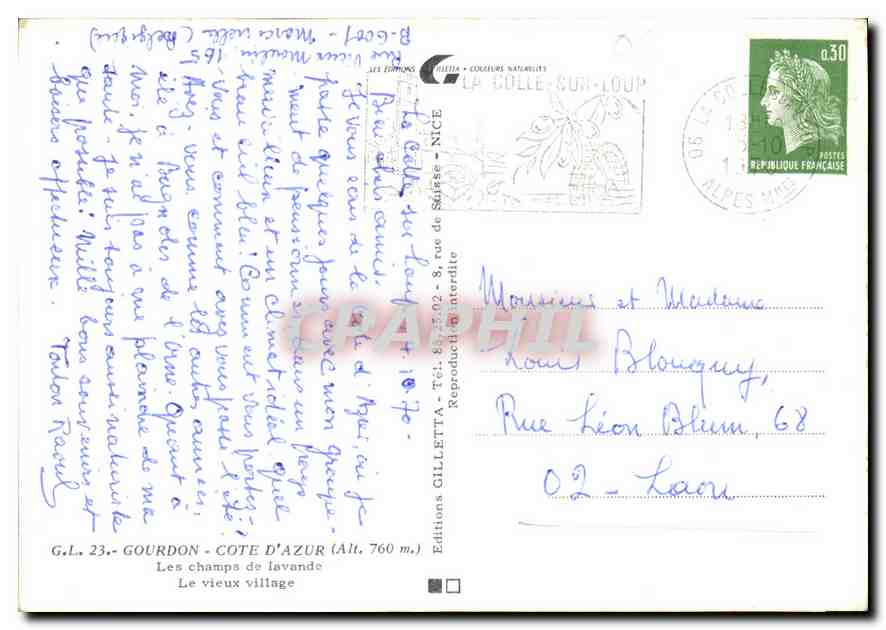 B-6001 - Marcinelle (Belgique)
Rue Vieux Moulin, 165
La Colle sur Loup, 10.70-
Bien chers amis,
Je vous écris de la Côte d'Azur, où je
passe quelques jours avec mon groupe-
ment de pensionnés, dans un pays
merveilleux et un climat idéal, quel
beau ciel bleu! Comment vous portez-
vous et comment avez-vous passé l'été.
Avez-vous, comme les autres années,
été à Bagnoles de l'Orne. Quant à
moi, je n'ai pas à me plaindre de ma
santé. Je suis toujours aussi naturiste
que possible! Mille bons souvenirs et
baisers affectueux. Tonton Raoul
LES EDITIONS GILLETTA - COULEURS NATURELLES
LA COLLE-SUR-LOUP
06 LA COLLE
ALPES MMES
0.30
POSTES
REPUBLIQUE FRANÇAISE
Editions GILLETTA - Tél. 88.25.02 - 8, rue de Suisse - NICE
Reproduction interdite
CPAPHIL
Monsieur et Madame
Louis Blougny,
Rue Léon Blum, 68
02 - Laon
G.L. 23.- GOURDON - COTE D'AZUR (Alt. 760 m.)
Les champs de lavande
Le vieux village